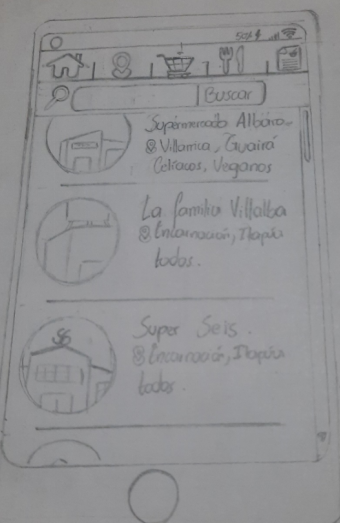 50%
Buscar
Supermercado Albório
Villarrica, Guairá
Celíacos, Veganos
La familia Villalba
Encarnación, Itapúa
todos.
S6
Super Seis.
Encarnación, Itapúa
todos.